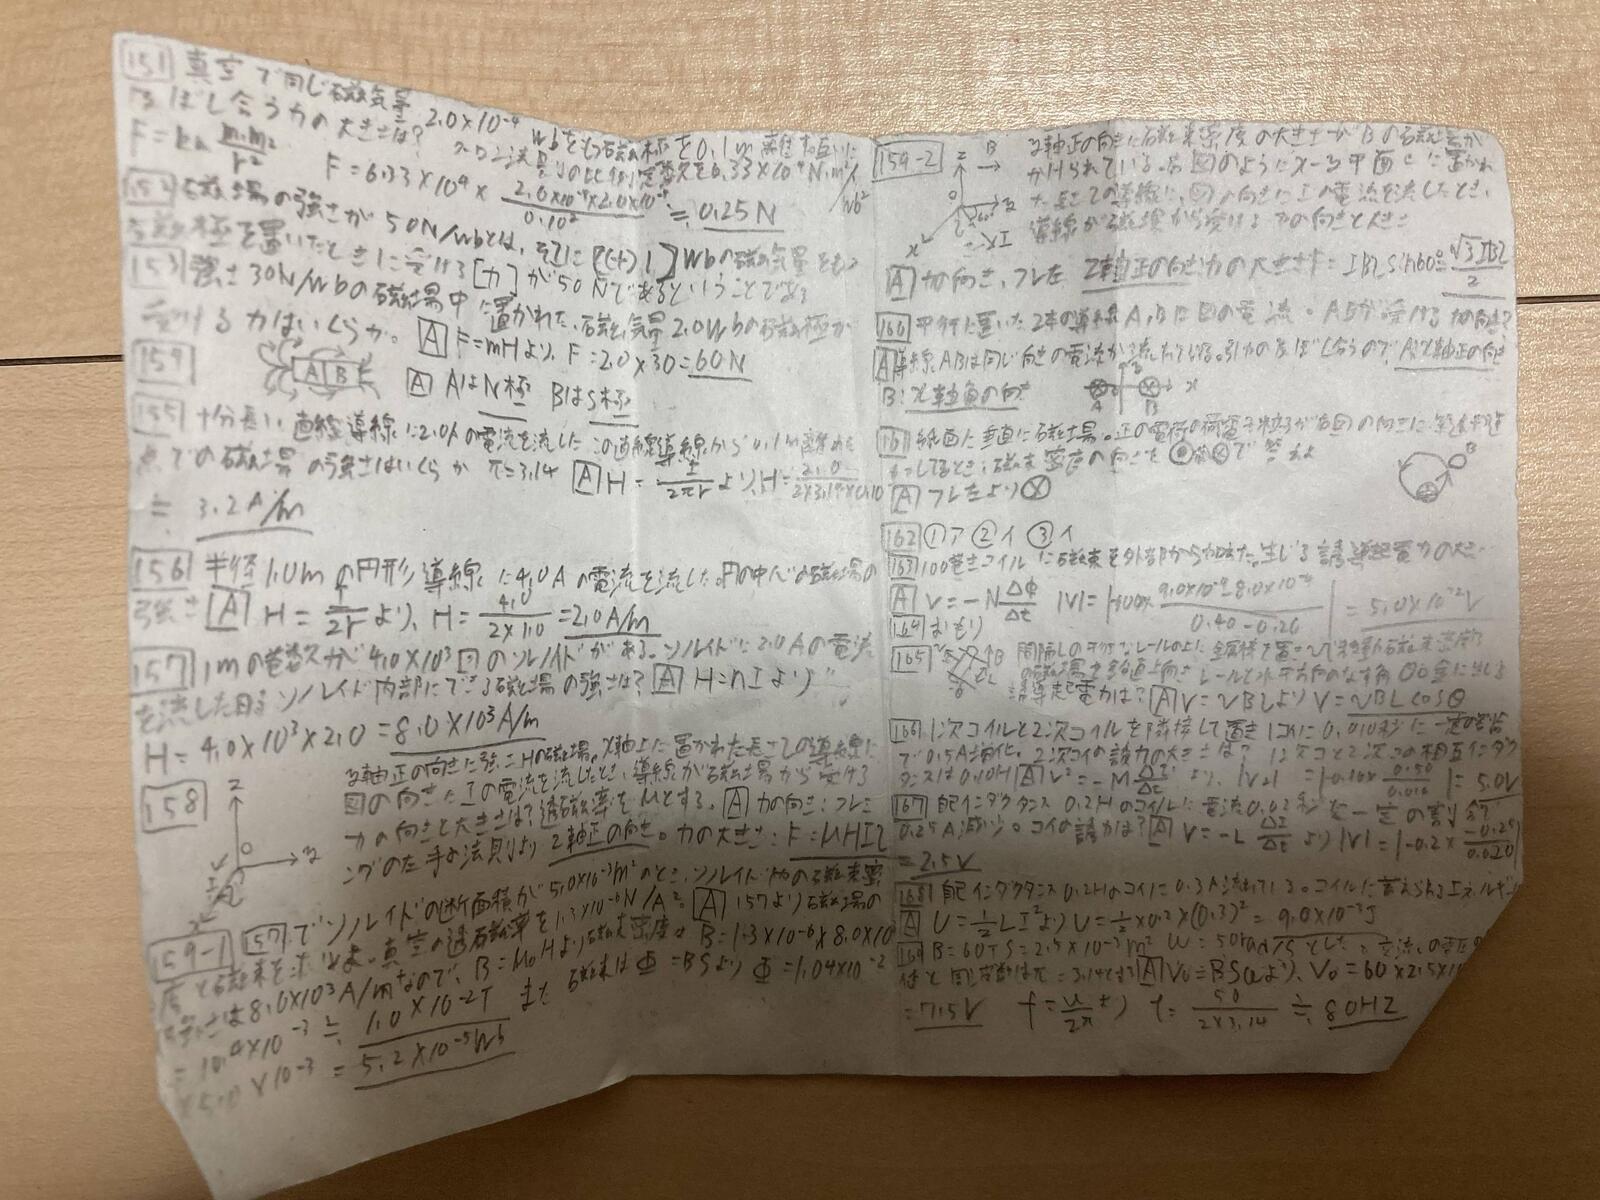 151 真空で同じ磁気量 2.0×10⁻⁴ Wbをもつ磁極を0.1m離す 互いに
及ぼし合う力の大きさは? クーロン 法則の比例定数を6.33×10⁴N・m²/Wb²
F=km m₁m₂/r² F=6.33×10⁴× 2.0×10⁻⁴×2.0×10⁻⁴/0.10² ≒ 0.25N
152 磁場の強さが50N/Wbとは、そこに[(+)1]Wbの磁気量をもつ
磁極を置いたときに受ける[力]が50Nであるということである
153 強さ30N/Wbの磁場中に置かれた、磁気量2.0Wbの磁極が
受ける力はいくらか。 A F=mHより、F=2.0×30=60N
154 A B A AはN極 BはS極
155 十分長い直線導線に2.0Aの電流を流した この直線導線から0.1m離れた
点での磁場の強さはいくらか π=3.14 A H=I/2πrより、H=2.0/2×3.14×0.10
≒ 3.2A/m
156 半径1.0mの円形導線に4.0Aの電流を流した。円の中心の磁場の
強さ A H=I/2rより、H=4.0/2×1.0=2.0A/m
157 1mの巻数が4.0×10³回のソレノイドがある。ソレノイドに2.0Aの電流
を流した時 ソレノイド内部にできる磁場の強さは? A H=nIより
H=4.0×10³×2.0=8.0×10³A/m
158 z O y x I y軸正の向きに強さHの磁場。x軸上に置かれた長さlの導線に
図の向きにIの電流を流したとき、導線が磁場から受ける
力の向きと大きさは?透磁率をμとする。A 力の向き:フレミ
ングの左手の法則より z軸正の向き。力の大きさ:F=μHIl
159-1 157でソレノイドの断面積が5.0×10⁻³m²のとき、ソレノイド内の磁束密
度と磁束を求めよ。真空の透磁率を1.3×10⁻⁶N/A²。A 157より磁場の
強さは8.0×10³A/mなので、B=μ₀Hより磁束密度は B=1.3×10⁻⁶×8.0×10³
=10.4×10⁻³≒1.0×10⁻²T また 磁束は Φ=BSより Φ=1.04×10⁻²
×5.0×10⁻³=5.2×10⁻⁵Wb
159-2 z B O y 60° x I y軸正の向きに磁束密度の大きさがBの磁場が
かけられている。右図のようにx-y平面上に置かれ
た長さlの導線に、図の向きにIの電流を流したとき、
導線が磁場から受ける力の向きと大きさ
A 力の向き、フレ左 z軸正の向き 力の大きさ F=IBl sin60°=√3IBl/2
160 平行に置いた2本の導線A,Bに図の電流。A,Bが受ける力の向き?
A 導線ABは同じ向きの電流が流れている。引力の及ぼし合うので A:x軸正の向き
B:x軸負の向き A B x
161 紙面に垂直に磁場。正の電荷の荷電粒子が右図の向きに等速円運
をしてるとき:磁束密度の向きを で答えよ
A フレ左より⊗
162 ①ア ②イ ③イ
163 100巻きコイルに磁束を外部から加えた。生じる誘導起電力の大
A V=-NΔΦ/Δt |V|=|-100× 9.0×10⁻⁴-8.0×10⁻⁴/0.40-0.20|=5.0×10⁻²V
164 おもり
165 間隔Lの平行なレールの上に金属棒を置 vで移動 磁束密度B
の磁場を鉛直上向き レールと水平方向のなす角θの金に生じる
誘導起電力は? A V=vBLより V=vBLcosθ
166 1次コイルと2次コイルを隣接して置き 1コイルに0.010秒に一定の割合
で0.5A増化。2次コイの誘力の大きさは? 1次コと2次コの相互インダク
タンスは0.10H A V²=-MΔI/Δtより、|V₂|=|-0.10×0.50/0.010|=5.0V
167 自己インダクタンス0.2Hのコイルに電流0.02秒を一定の割合で
0.25A減少。コイの誘力は? A V=-LΔI/Δtより|V|=|-0.2×-0.25/0.020|
=2.5V
168 自己インダクタンス0.2Hのコイに0.3A流れている。コイルに蓄えられるエネルギー
A U=½LI²よりU=½×0.2×(0.3)²=9.0×10⁻³J
169 B=60T S=2.5×10⁻³m² ω=50rad/sとした 交流の電圧の
と周波数は π=3.14とする A V₀=BSωより、V₀=60×2.5×10
=7.5V f=ω/2πより f=50/2×3.14≒8.0HZ